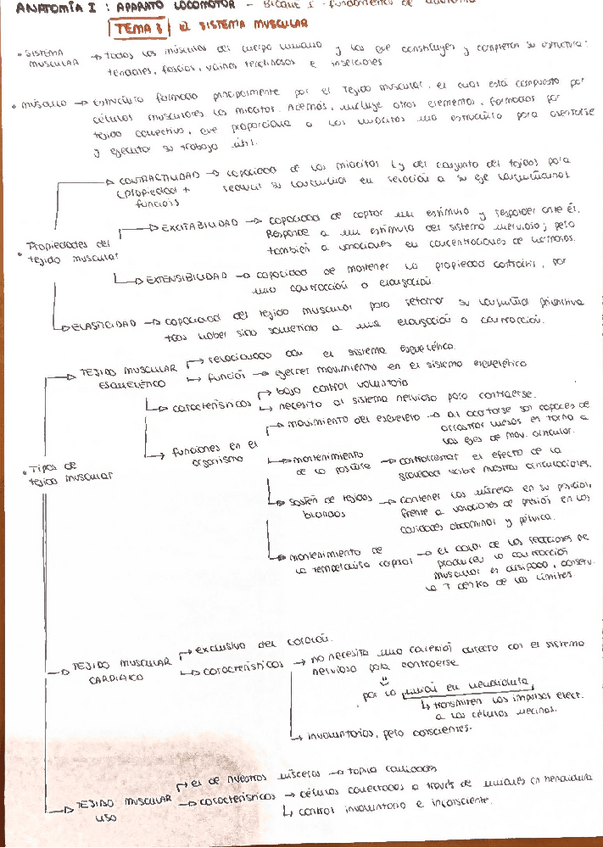 ANATOMÍA I : APARATO LOCOMOTOR - Bloque I - fundamentos de anatomía
TEMA 8 El SISTEMA MUSCULAR
• SISTEMA MUSCULAR → todos los músculos del cuerpo humano y los que constituyen y completan su estructura:
tendones, fascias, vainas tendinosas e inserciones
• MÚSCULO → estructura formada principalmente por el tejido muscular, el cual está compuesto por
células musculares los miocitos. Además, incluye otros elementos, formados por
tejido conectivo, que proporciona a los miocitos una estructura para asentarse
y ejecutar su trabajo útil.
• Propiedades del tejido muscular
→ CONTRACTILIDAD (propiedad + función) → capacidad de los miocitos (y del conjunto del tejido) para
reducir su longitud en relación a su eje longitudinal
→ EXCITABILIDAD → capacidad de captar un estímulo y responder ante él.
Responde a un estímulo del sistema nervioso; pero
también a variaciones en concentraciones de hormonas.
→ EXTENSIBILIDAD → capacidad de mantener la propiedad contráctil, por
una contracción o elongación
→ ELASTICIDAD → capacidad del tejido muscular para retomar su longitud primitiva
tras haber sido sometido a una elongación o contracción.
• Tipos de tejido muscular
→ TEJIDO MUSCULAR ESQUELÉTICO
→ relacionado con el sistema esquelético.
→ función → ejercer movimiento en el sistema esquelético
→ características → bajo control voluntario
→ necesita al sistema nervioso para contraerse.
→ funciones en el organismo
→ movimiento del esqueleto → al acortarse son capaces de
arrastrar huesos en torno a
los ejes de mov. circular.
→ mantenimiento de la postura → contrarrestar el efecto de la
gravedad sobre nuestras articulaciones.
→ sostén de tejidos blandos → contener las vísceras en su posición,
frente a variaciones de presión en las
cavidades abdominal y pélvica.
→ mantenimiento de la temperatura corporal → el calor de las reacciones que
producen la contracción
muscular es disipado, conserv.
la T dentro de los límites.
→ TEJIDO MUSCULAR CARDIACO
→ exclusivo del corazón.
→ características → no necesita una conexión directa con el sistema
nervioso para contraerse
por la unión en hendidura
↳ transmiten los impulsos elect.
a las células vecinas.
→ involuntarios, pero conscientes.
→ TEJIDO MUSCULAR LISO
→ el de nuestras vísceras → tapiza cavidades
→ características → células conectadas a través de uniones en hendidura
↳ control involuntario e inconsciente.